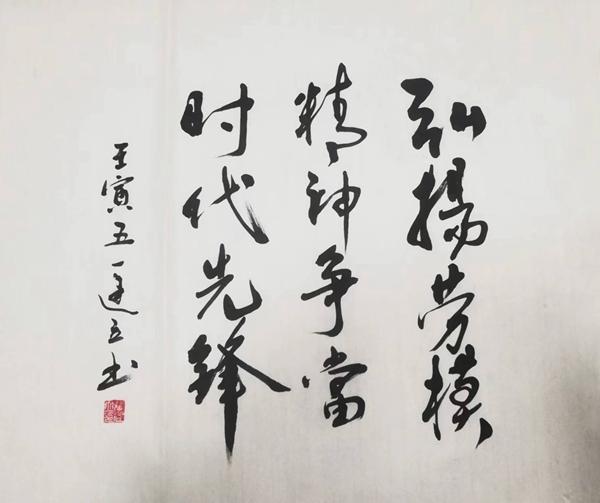 弘揚劳模
精神争當
时代先锋
壬寅五一建立书